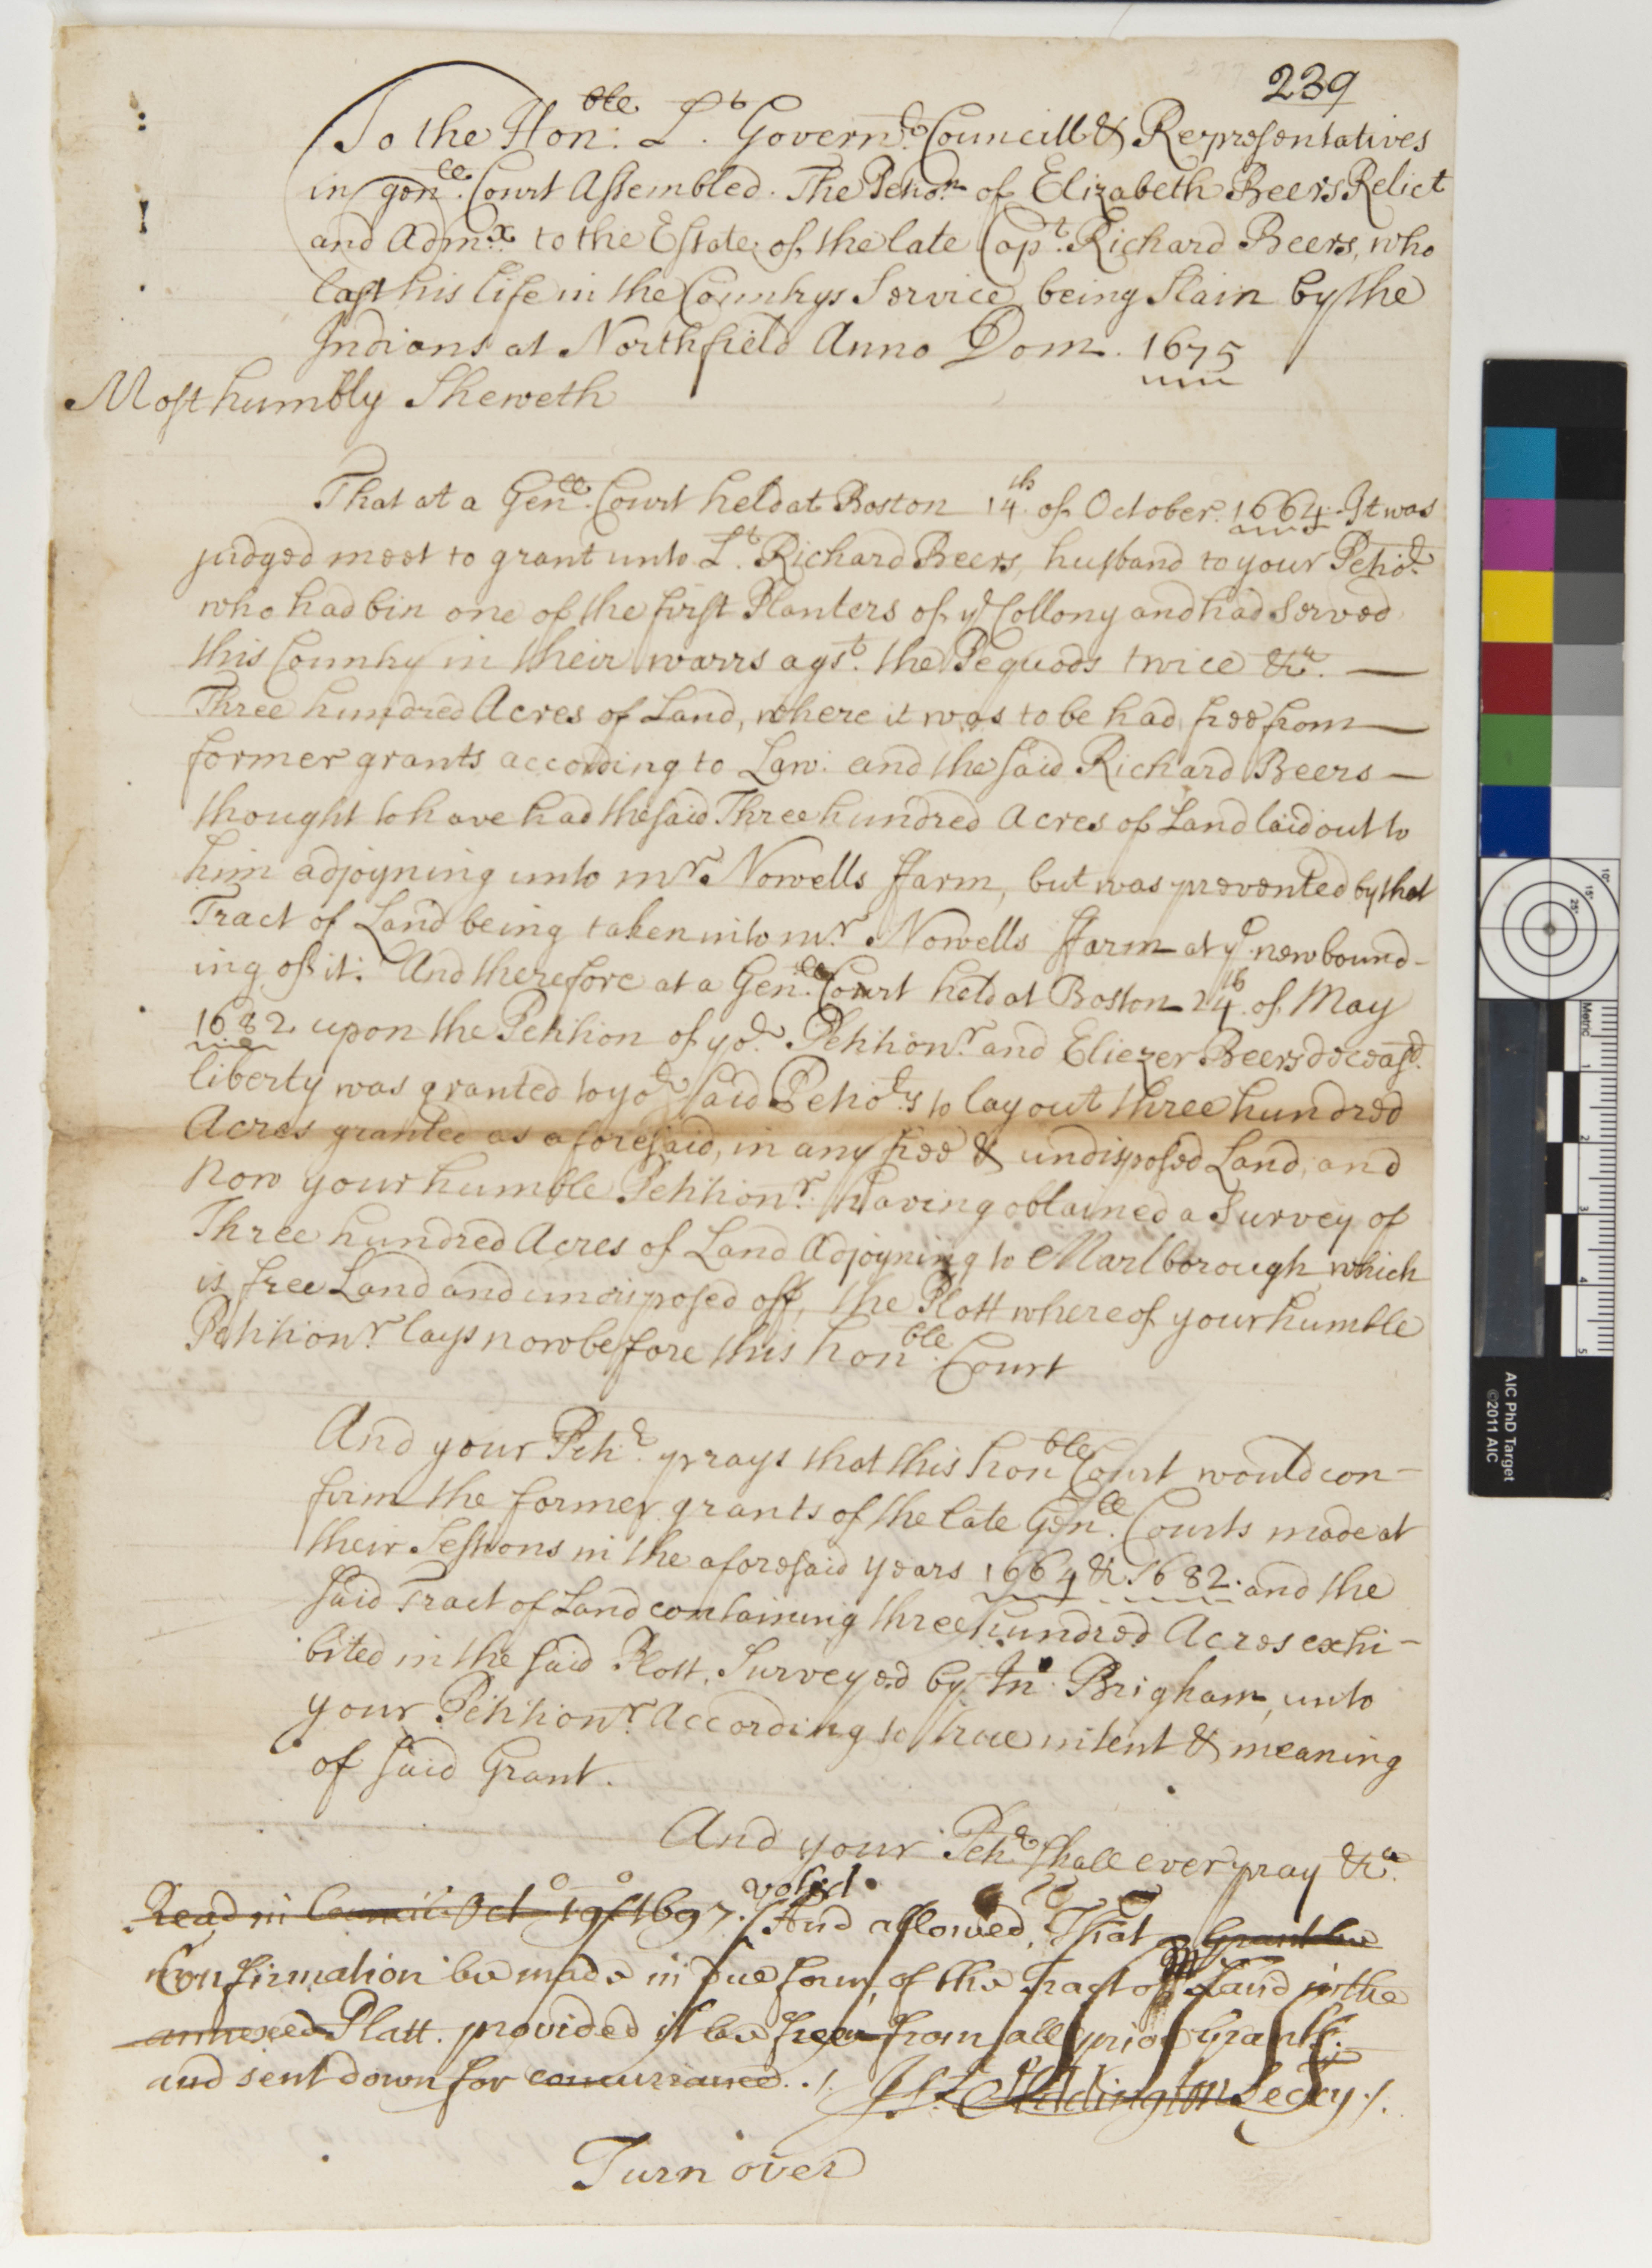 239
To the Hon:ble Lt. Governr. Councill & Representatives
in genll. Court Assembled. The Petion. of Elizabeth Beers Relict
and Admx. to the Estate of the late Capt. Richard Beers, who
last his life in the Countrys Service being Slain by the
Indians at Northfield Anno Dom. 1675
Most humbly Sheweth
That at a Genll. Court held at Boston 14th. of October. 1664. It was
judged meet to grant unto Lt. Richard Beers, husband to your Petior.
who had bin one of the first Planters of ye Collony and had served
this Country in their warrs agst. the Pequods twice &ca. —
Three hundred Acres of Land, where it was to be had free from —
former grants according to Law: and the said Richard Beers —
thought to have had the said Three hundred Acres of Land laid out to
him adjoyning unto mr. Nowells ffarm, but was prevented by that
Tract of Land being taken into mr. Nowells ffarm at ye new bound-
ing of it: And therefore at a Genll. Court held at Boston 24th. of May
1682 upon the Petition of yor. Petitionr. and Eliezer Beers deceasd.
liberty was granted to yor said Petiors to lay out three hundred
Acres granted as aforesaid, in any free & undisposed Land, and
now your humble Petitionr. having obtained a Survey of
Three hundred Acres of Land Adjoyning to Marlborough which
is free Land and undisposed off, the Plott whereof your humble
Petitionr. lays now before this honble. Court
And your Petir. prays that this honble Court would con-
firm the former grants of the late Genll. Courts made at
their Sessions in the aforesaid years 1664 & 1682. and the
said Tract of Land containing three hundred Acres exhi-
bited in the said Plott. Surveyed by Jn. Brigham, unto
your Petitionr. According to true intent & meaning
of said Grant.
And your Petir. shall ever pray &ca.
voted.
Read in Council Oct. 19o. 1697. And allowed, That a Grant be
Confirmation be made in due form, of the Tract of Land in the
annexed Platt. provided it be free from all prior Grants.
and sent down for concurrance ./. Isa. Addington Secry./.
Turn over